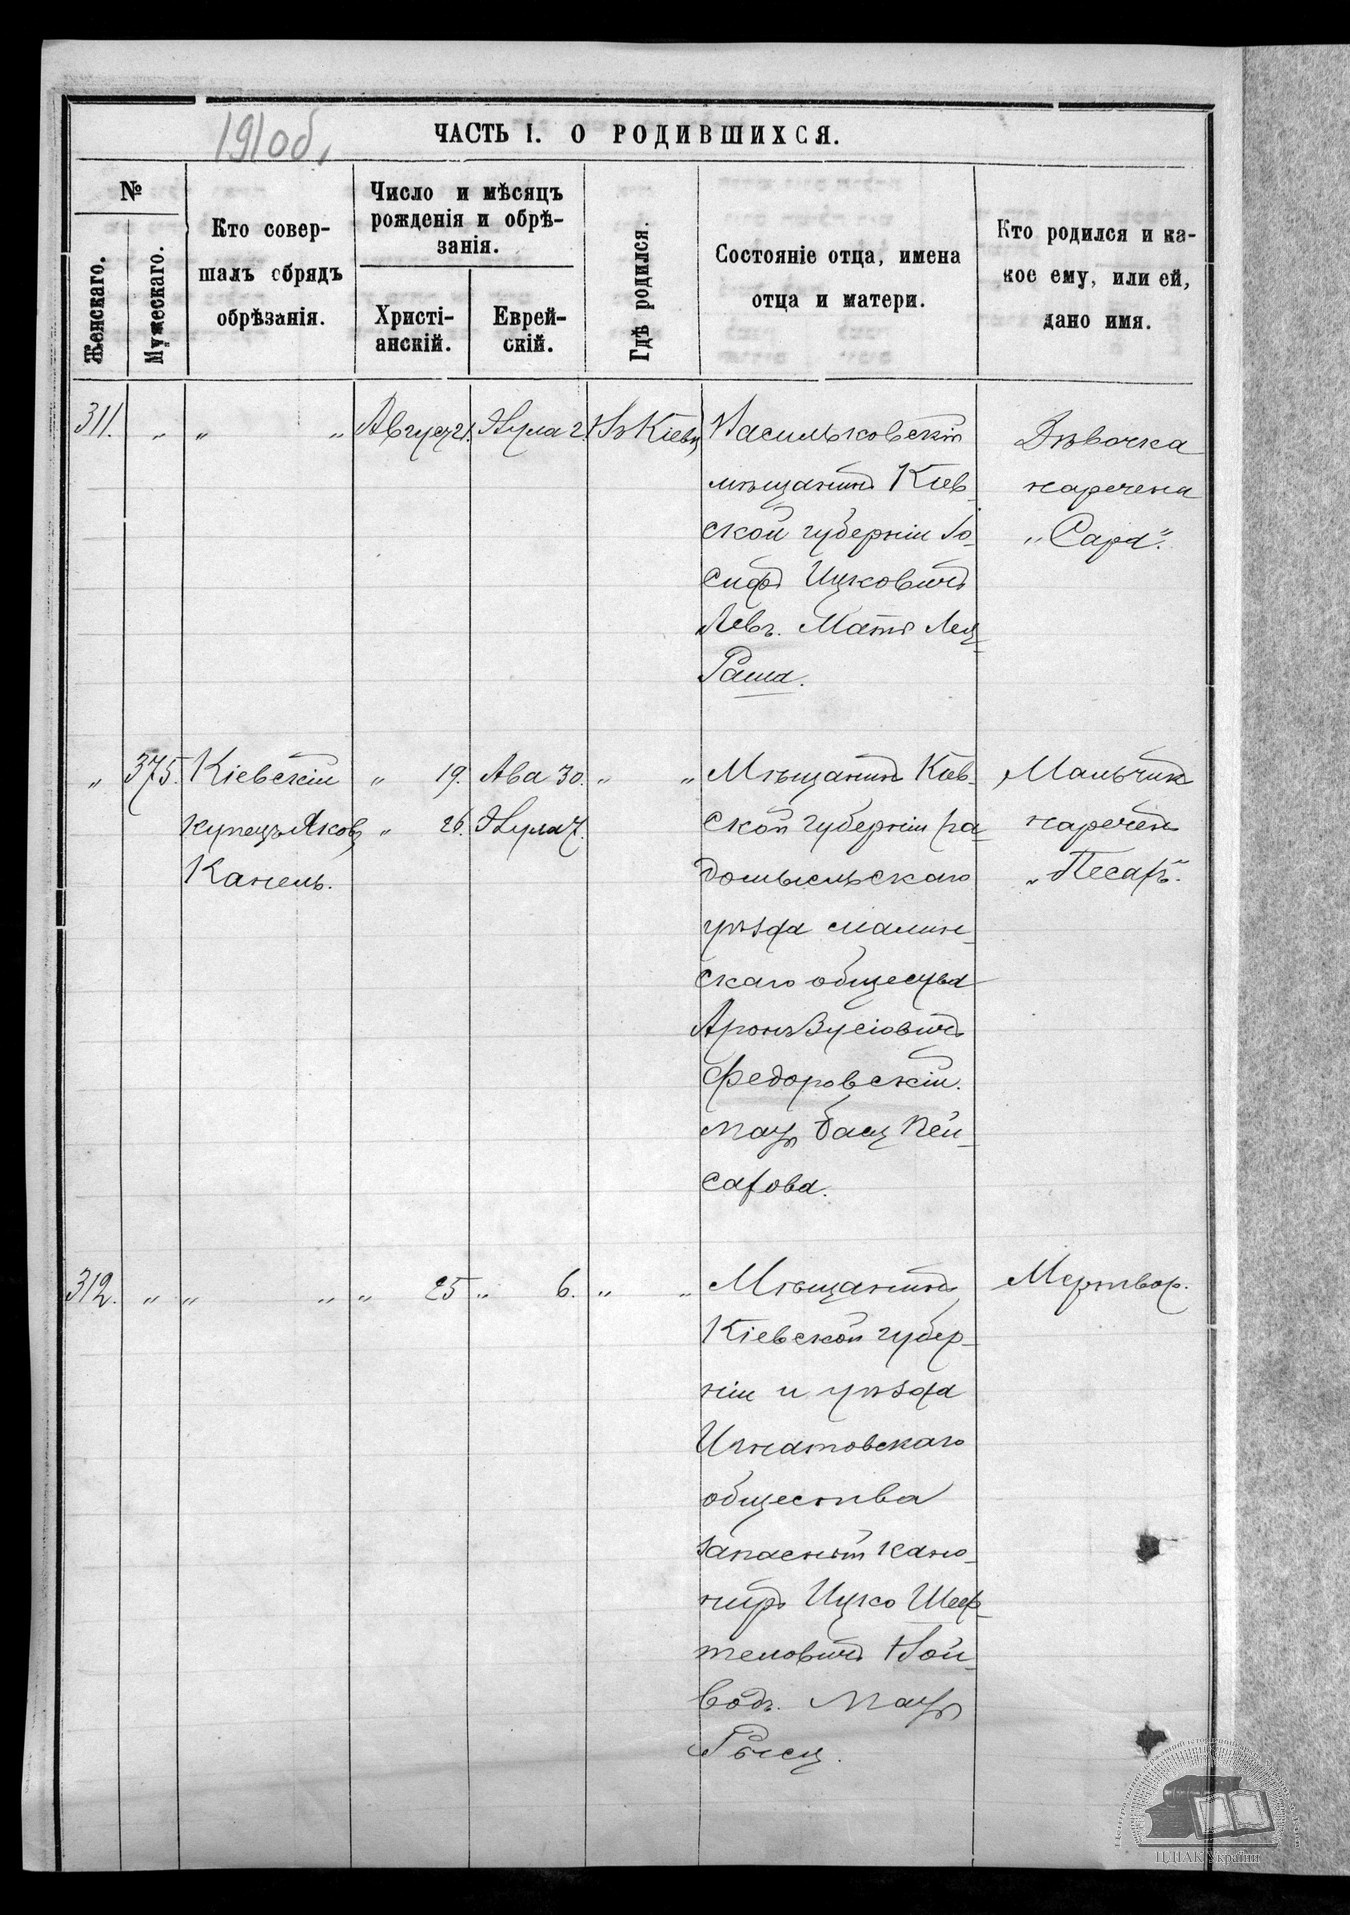 191об.
ЧАСТЬ I. О РОДИВШИХСЯ.
№
Женскаго.
Мужескаго.
Кто совер-
шалъ обрядъ
обрѣзанія.
Число и мѣсяцъ
рожденія и обрѣ-
занія.
Христі-
анскій.
Еврей-
скій.
Гдѣ родился.
Состояніе отца, имена
отца и матери.
Кто родился и ка-
кое ему, или ей,
дано имя.
311. „ „ „ Август 21. Элула 2. Въ Кіевѣ
Васильковскій
мѣщанинъ Кіев-
ской губерніи Іо-
сифъ Ицковичъ
Левъ. Мать Леи-
Раша.
Дѣвочка
наречена
„Сара“.
„ 375. Кіевскій „ 19. Ава 30. „ „
купецъ Яковъ „ 26. Элула 7.
Канель.
Мѣщанинъ Кіев-
ской губерніи ра-
домысльскаго
уѣзда малин-
скаго общества
Аронъ Вусіовичъ
Федоровскій.
Мать Бася Пей-
сахова.
Мальчикъ
нареченъ
„Песахъ“.
312. „ „ „ „ 25 „ 6. „ „
Мѣщанинъ
Кіевской губер-
ніи и уѣзда
Игнатовскаго
общества
запасный кано-
ниръ Ицко Шеф-
телевичъ Вой-
водъ. Мать
Рыся.
Мертвор.
ЦДІАК України